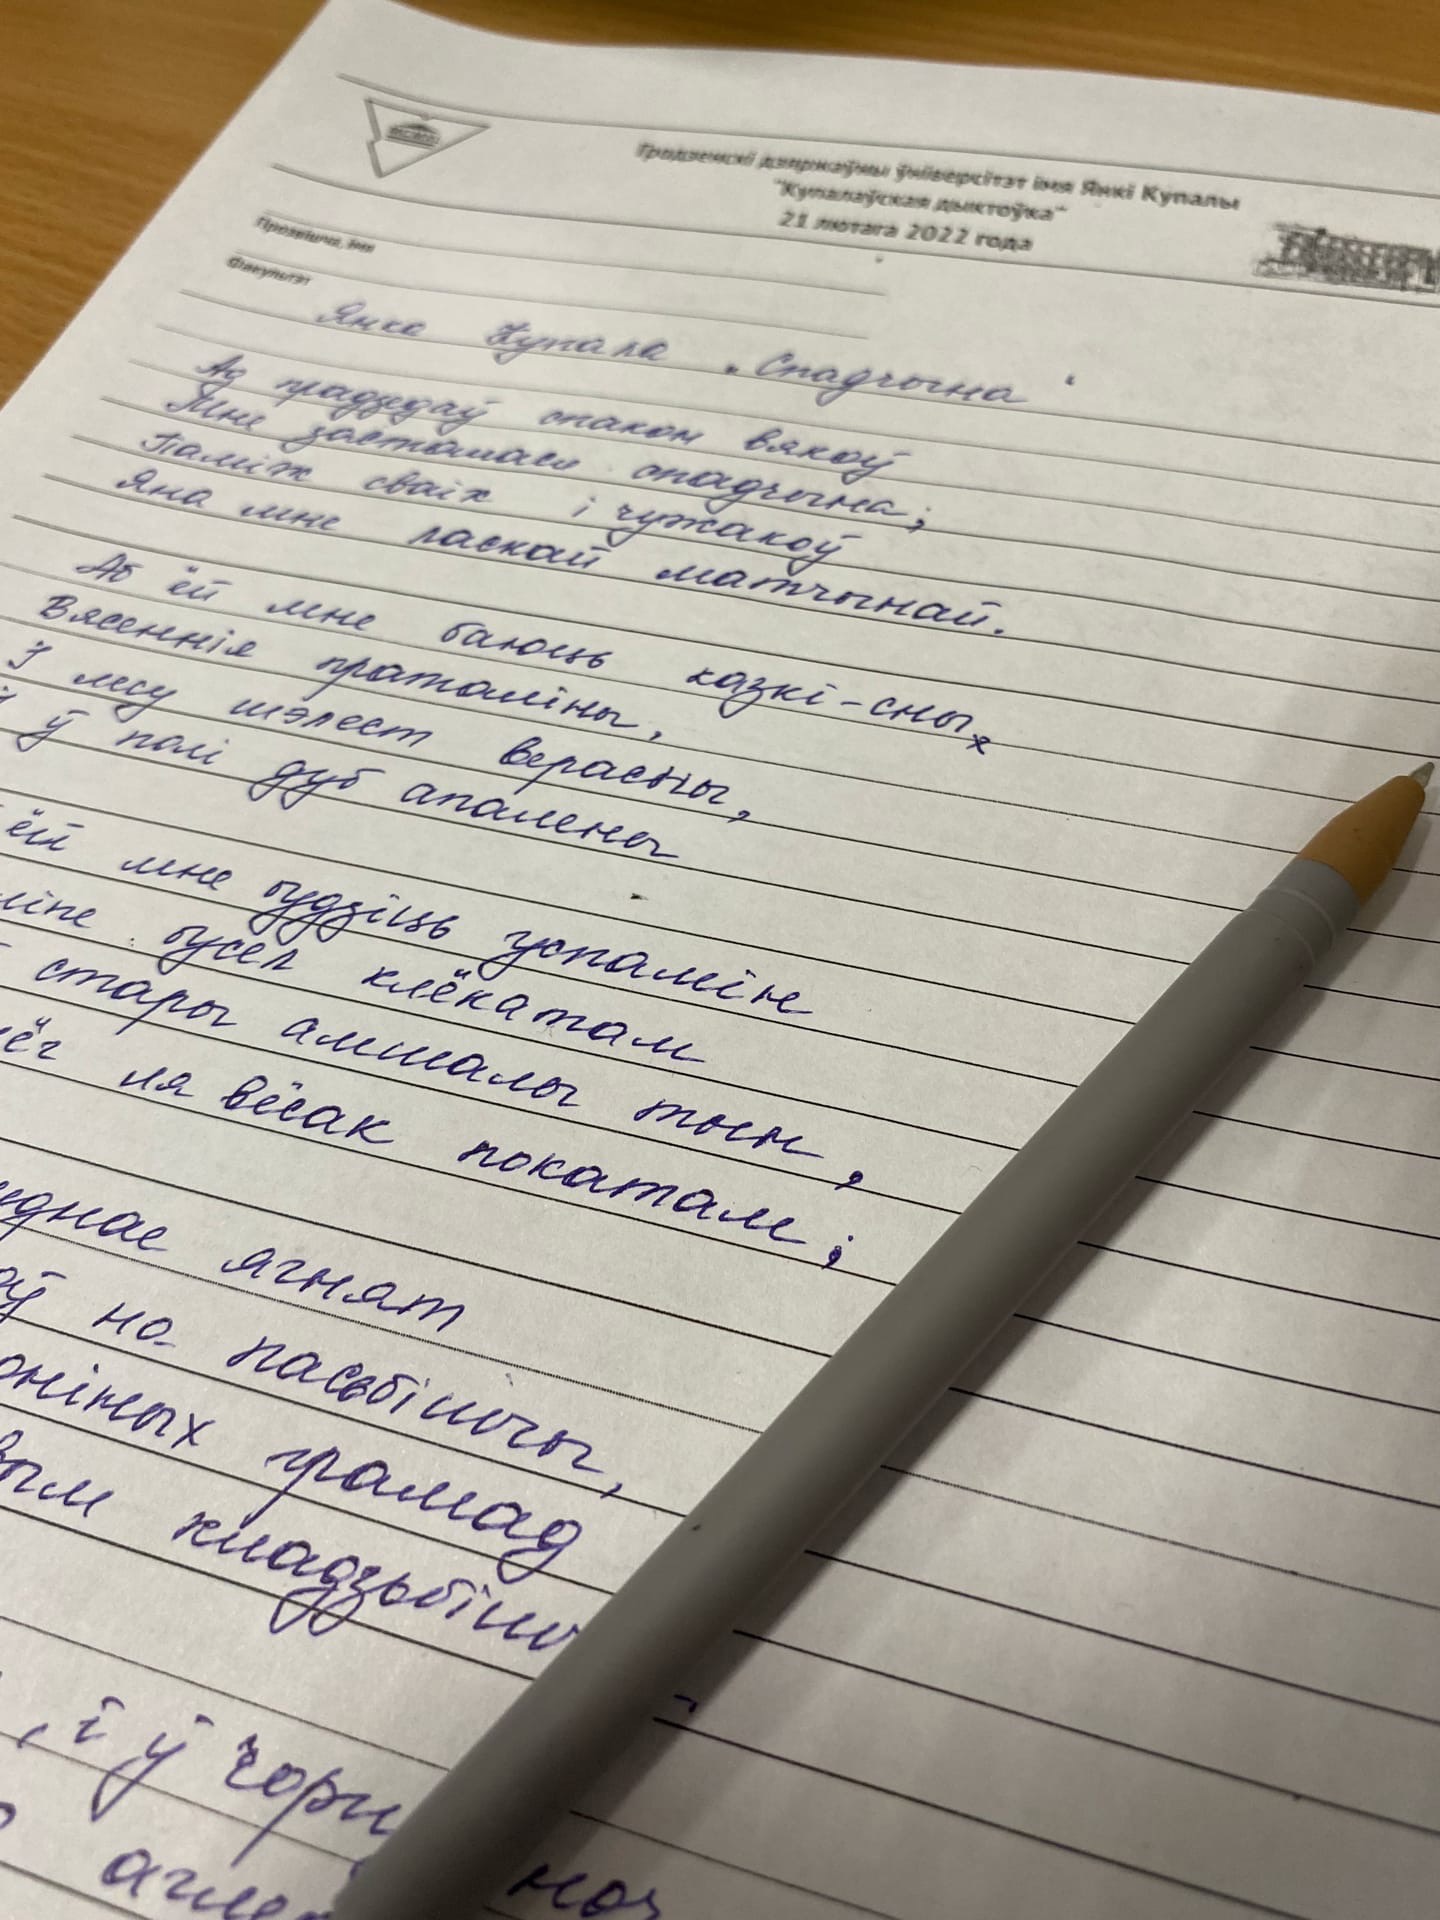 Гродзенскі дзяржаўны ўніверсітэт імя Янкі Купалы
"Купалаўская дыктоўка"
21 лютага 2022 года
Прозвішча, імя
Факультэт
Янка Купала „Спадчына"
Ад прадзедаў спакон вякоў
Мне засталася спадчына;
Паміж сваіх і чужакоў
Яна мне ласкай матчынай.
Аб ёй мне баюць казкі-сны,
Вясеннія праталіны,
І лесу шэлест верасны,
І ў полі дуб апалены
ёй мне будзіць успамін
ліпе бусел клёкатам
стары амшалы тын,
лёг ля вёсак покатам;
ягнят
на пасьбішчы,
грамад
кладзьбішч
, і ў чорн
ноч